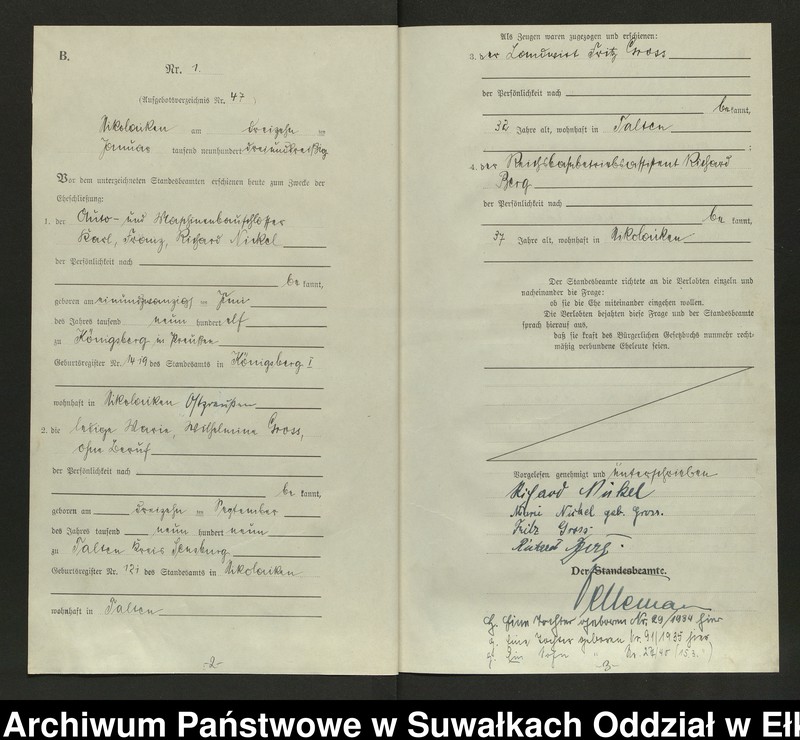 B.
Nr. 1.
(Aufgebotverzeichnis Nr. 47)
Nikolaiken am dreizehn ten
Januar tausend neunhundert dreiunddreißig
Vor dem unterzeichneten Standesbeamten erschienen heute zum Zwecke der
Eheschließung:
1. der Auto- und Maschinenbauschlosser
Karl, Franz, Richard Nickel
der Persönlichkeit nach
be kannt,
geboren am einundzwanzigs ten Juni
des Jahres tausend neun hundert elf
zu Königsberg in Preußen
Geburtsregister Nr. 419 des Standesamts in Königsberg I
wohnhaft in Nikolaiken Ostpreußen
2. die ledige Marie, Wilhelmine Gross,
ohne Beruf
der Persönlichkeit nach
be kannt,
geboren am dreizehn ten September
des Jahres tausend neun hundert neun
zu Talten Kreis Sensburg
Geburtsregister Nr. 121 des Standesamts in Nikolaiken
wohnhaft in Talten
-2-
Als Zeugen waren zugezogen und erschienen:
3. der Landwirt Fritz Gross
der Persönlichkeit nach
be kannt,
32 Jahre alt, wohnhaft in Talten
;
4. der Reichsbahnbetriebsassistent Richard
Berg
der Persönlichkeit nach
be kannt,
37 Jahre alt, wohnhaft in Nikolaiken
Der Standesbeamte richtete an die Verlobten einzeln und
nacheinander die Frage:
ob sie die Ehe miteinander eingehen wollen.
Die Verlobten bejahten diese Frage und der Standesbeamte
sprach hierauf aus,
daß sie kraft des Bürgerlichen Gesetzbuchs nunmehr recht-
mäßig verbundene Eheleute seien.
Vorgelesen genehmigt und unterschrieben
Richard Nickel
Marie Nickel geb. Gross.
Fritz Gross
Richard Berg.
Der Standesbeamte.
G. Eine Tochter geboren Nr. 29/1934 hier
g. Eine Tochter geboren Nr. 91/1935 hier
g. Ein Sohn " Nr. 27/45 (15.3. )
-3-
Archiwum Państwowe w Suwałkach Oddział w Ełk